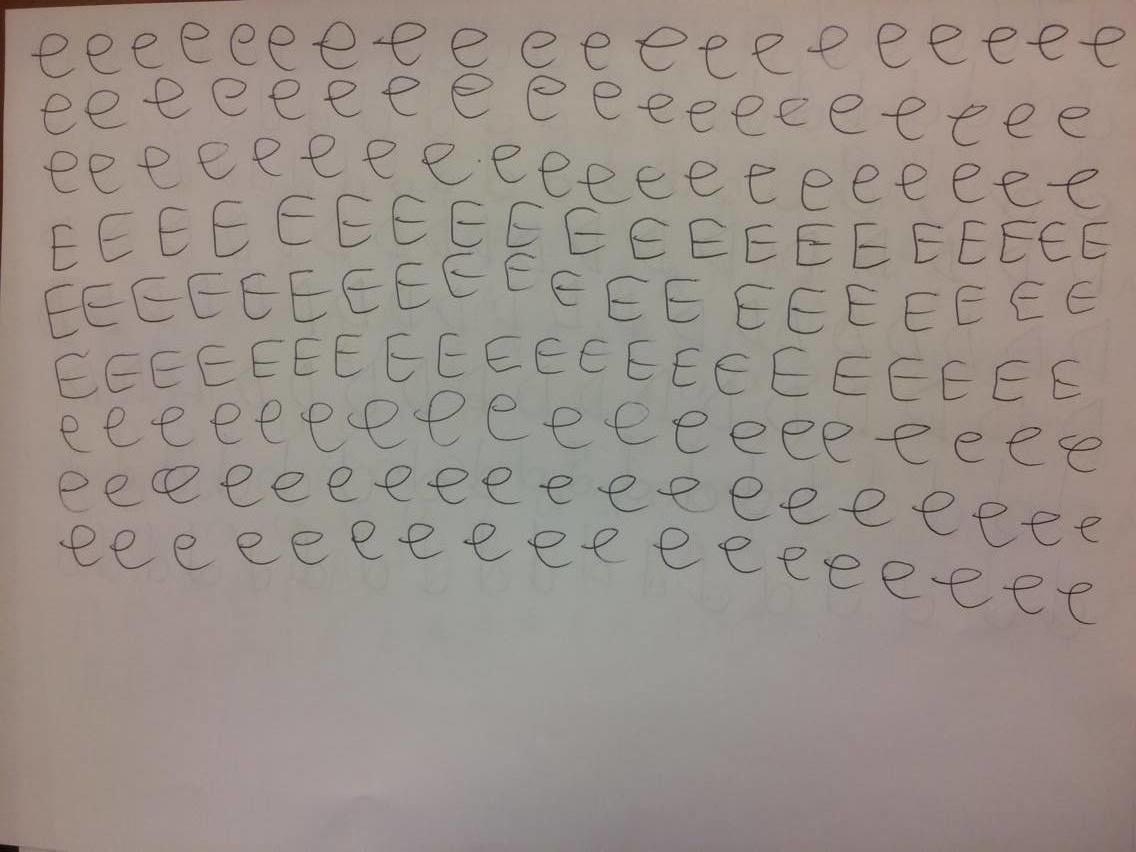 e e e e e e e e e e e e e e e e e e e e
e e e e e e e e e e e e e e e e e e e
e e e e e e e e e e e e e e e e e e e e
E E E E E E E E E E E E E E E E E E E E
E E E E E E E E E E E E E E E E E E E E
E E E E E E E E E E E E E E E E E E E E E
e e e e e e e e e e e e e e e e e e e
e e e e e e e e e e e e e e e e e e e
e e e e e e e e e e e e e e e e e e